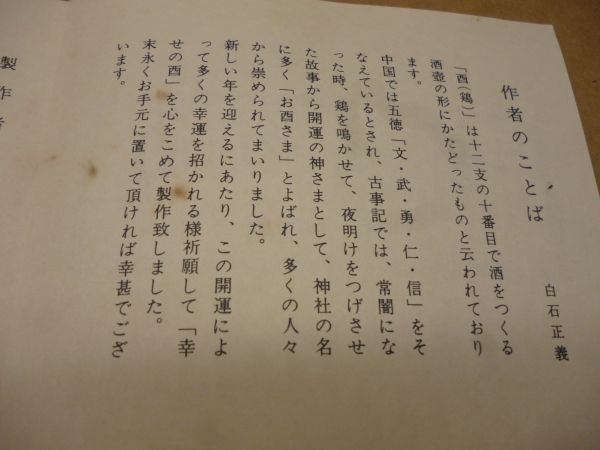 作者のことば
白石正義
「酉(鶏)」は十二支の十番目で酒をつくる
酒壺の形にかたどったものと云われており
ます。
中国では五徳「文・武・勇・仁・信」をそ
なえているとされ、古事記では、常闇にな
った時、鶏を鳴かせて、夜明けをつげさせ
た故事から開運の神さまとして、神社の名
に多く「お酉さま」とよばれ、多くの人々
から崇められてまいりました。
新しい年を迎えるにあたり、この開運によ
って多くの幸運を招かれる様祈願して「幸
せの酉」を心をこめて製作致しました。
末永くお手元に置いて頂ければ幸甚でござ
います。
製作者